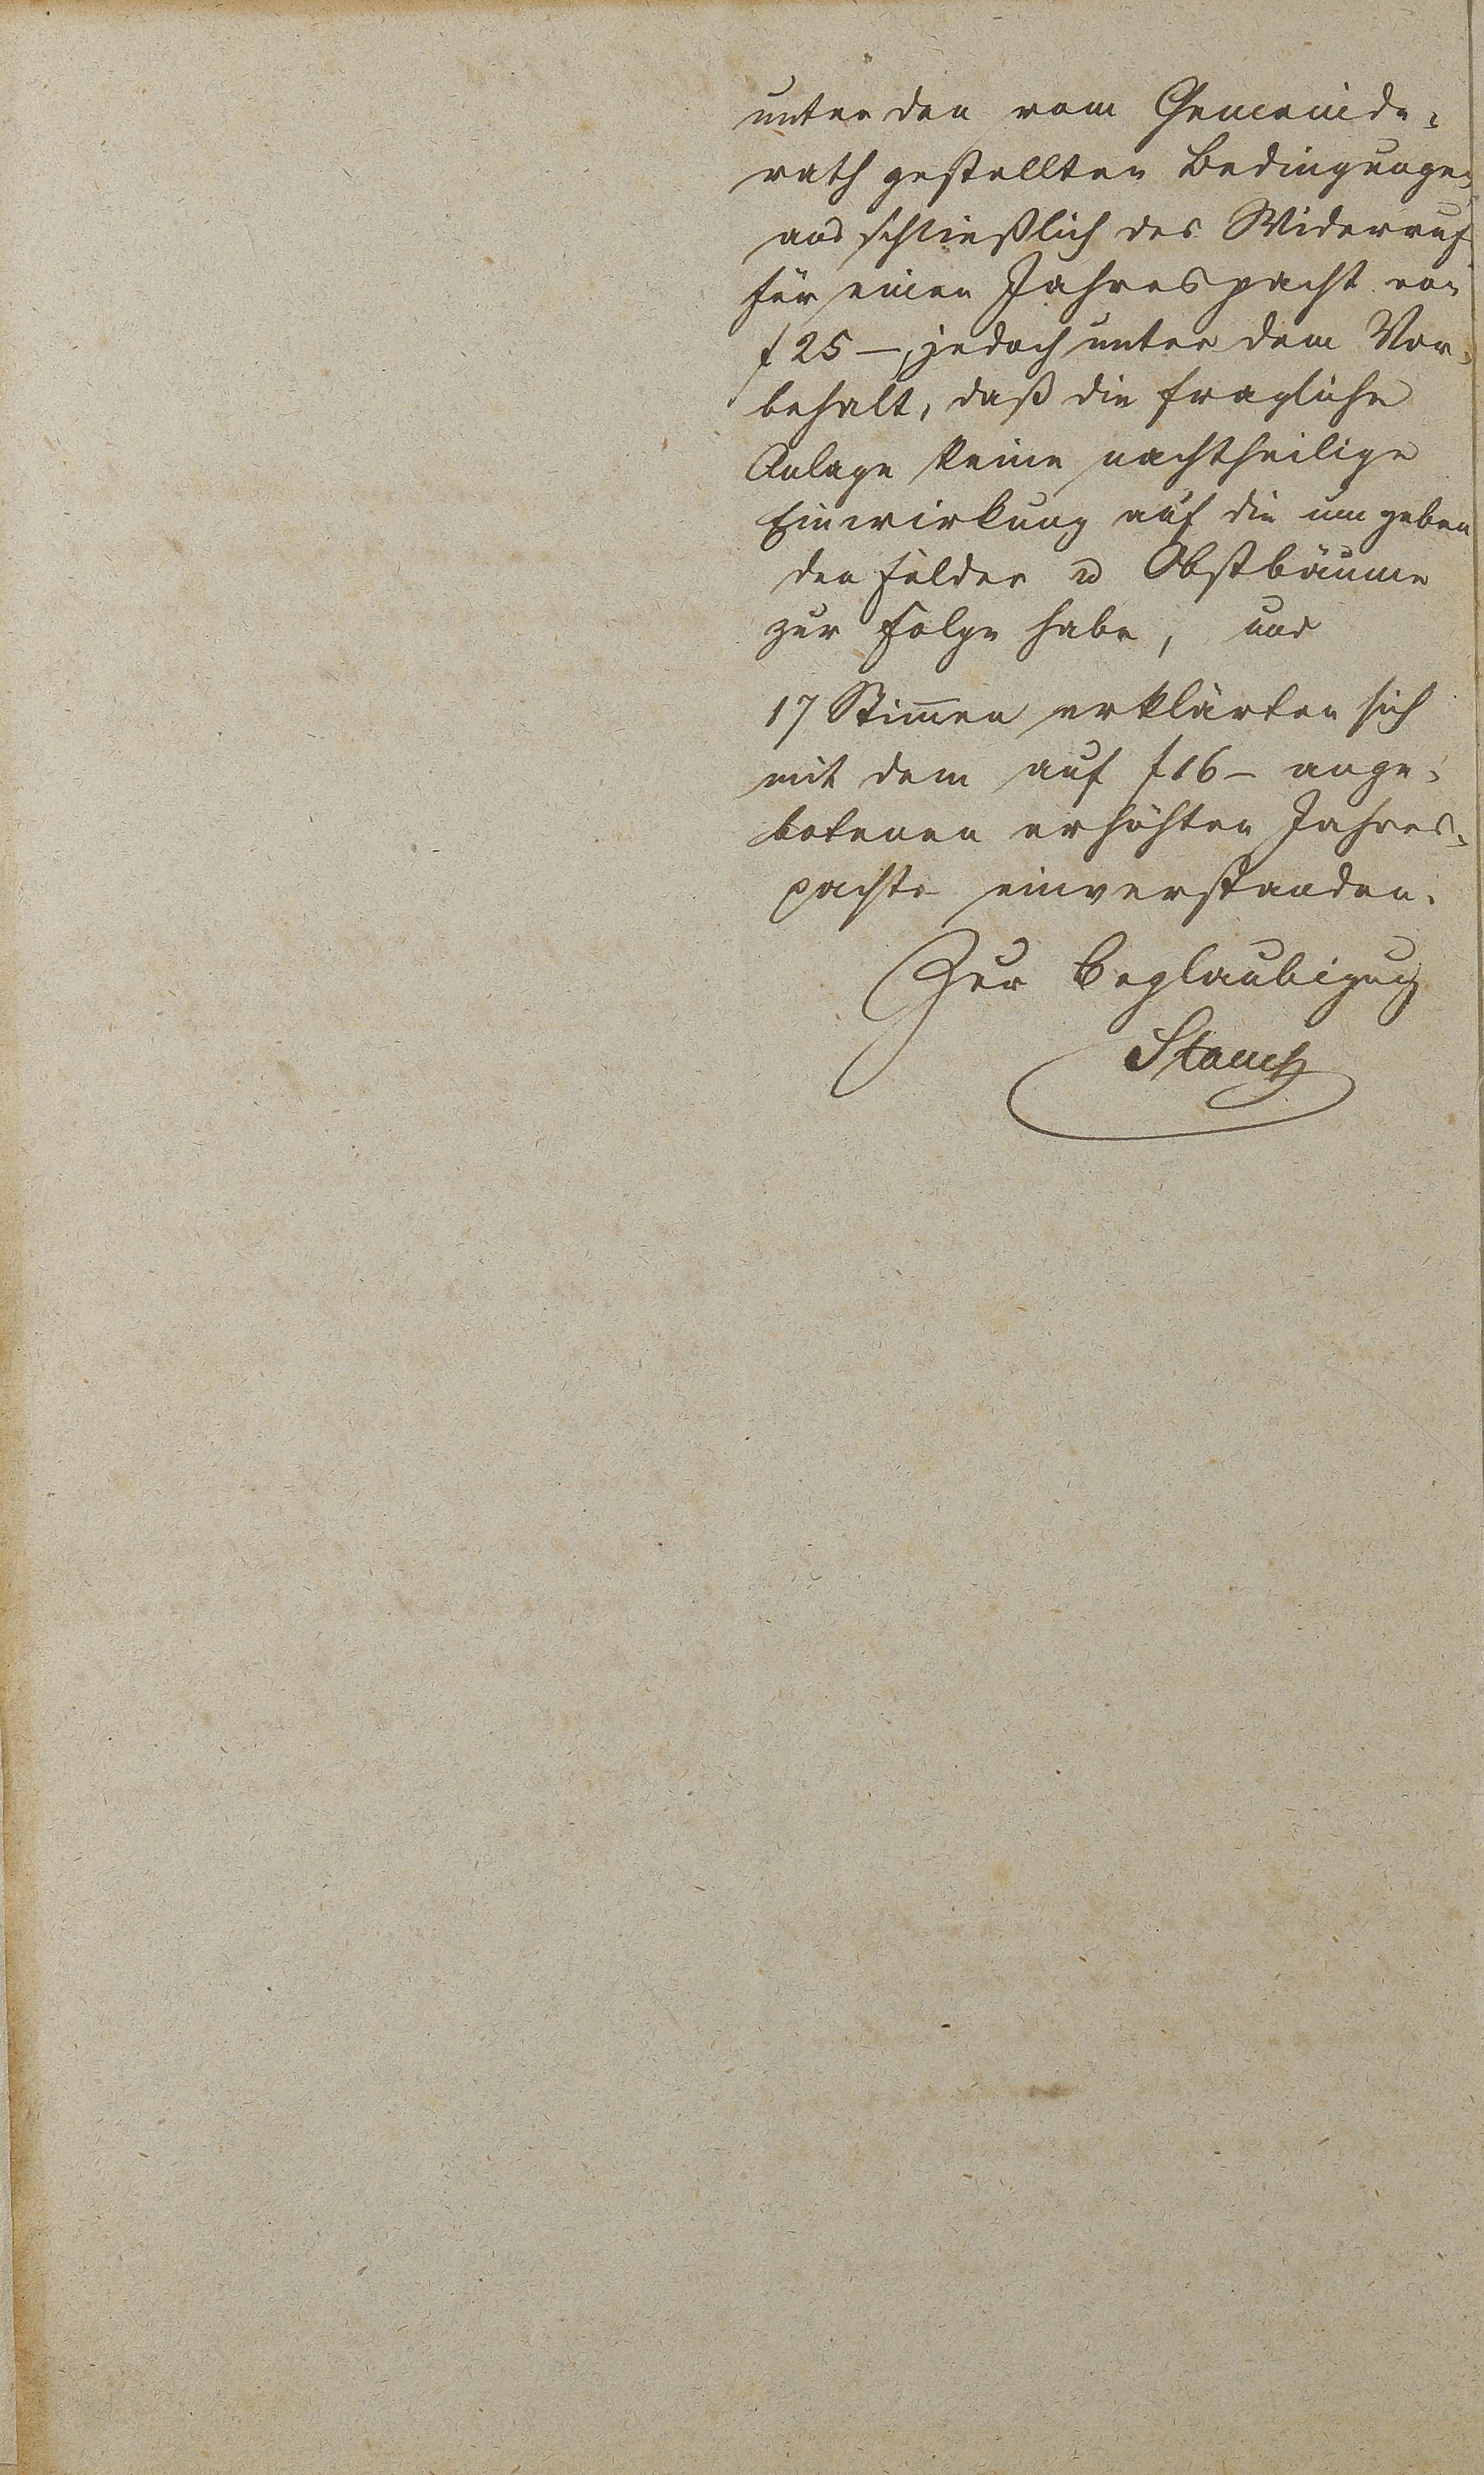 unter den vom Gemeinde-
rath gestellten Bedingungen
ausschließlich des Widerruf
für einen Jahrespacht von
f 25 –, jedoch unter dem Vor-
behalt, daß die fragliche
Anlage keine nachtheilige
Einwirkung auf die umgeben
den Felder u Obstbäume
zur Folge habe, und
17 Stimmen erklärten sich
mit dem auf f 16 – ange-
botenen erhöhten Jahres-
pachte einverstanden.
Zur Beglaubigung